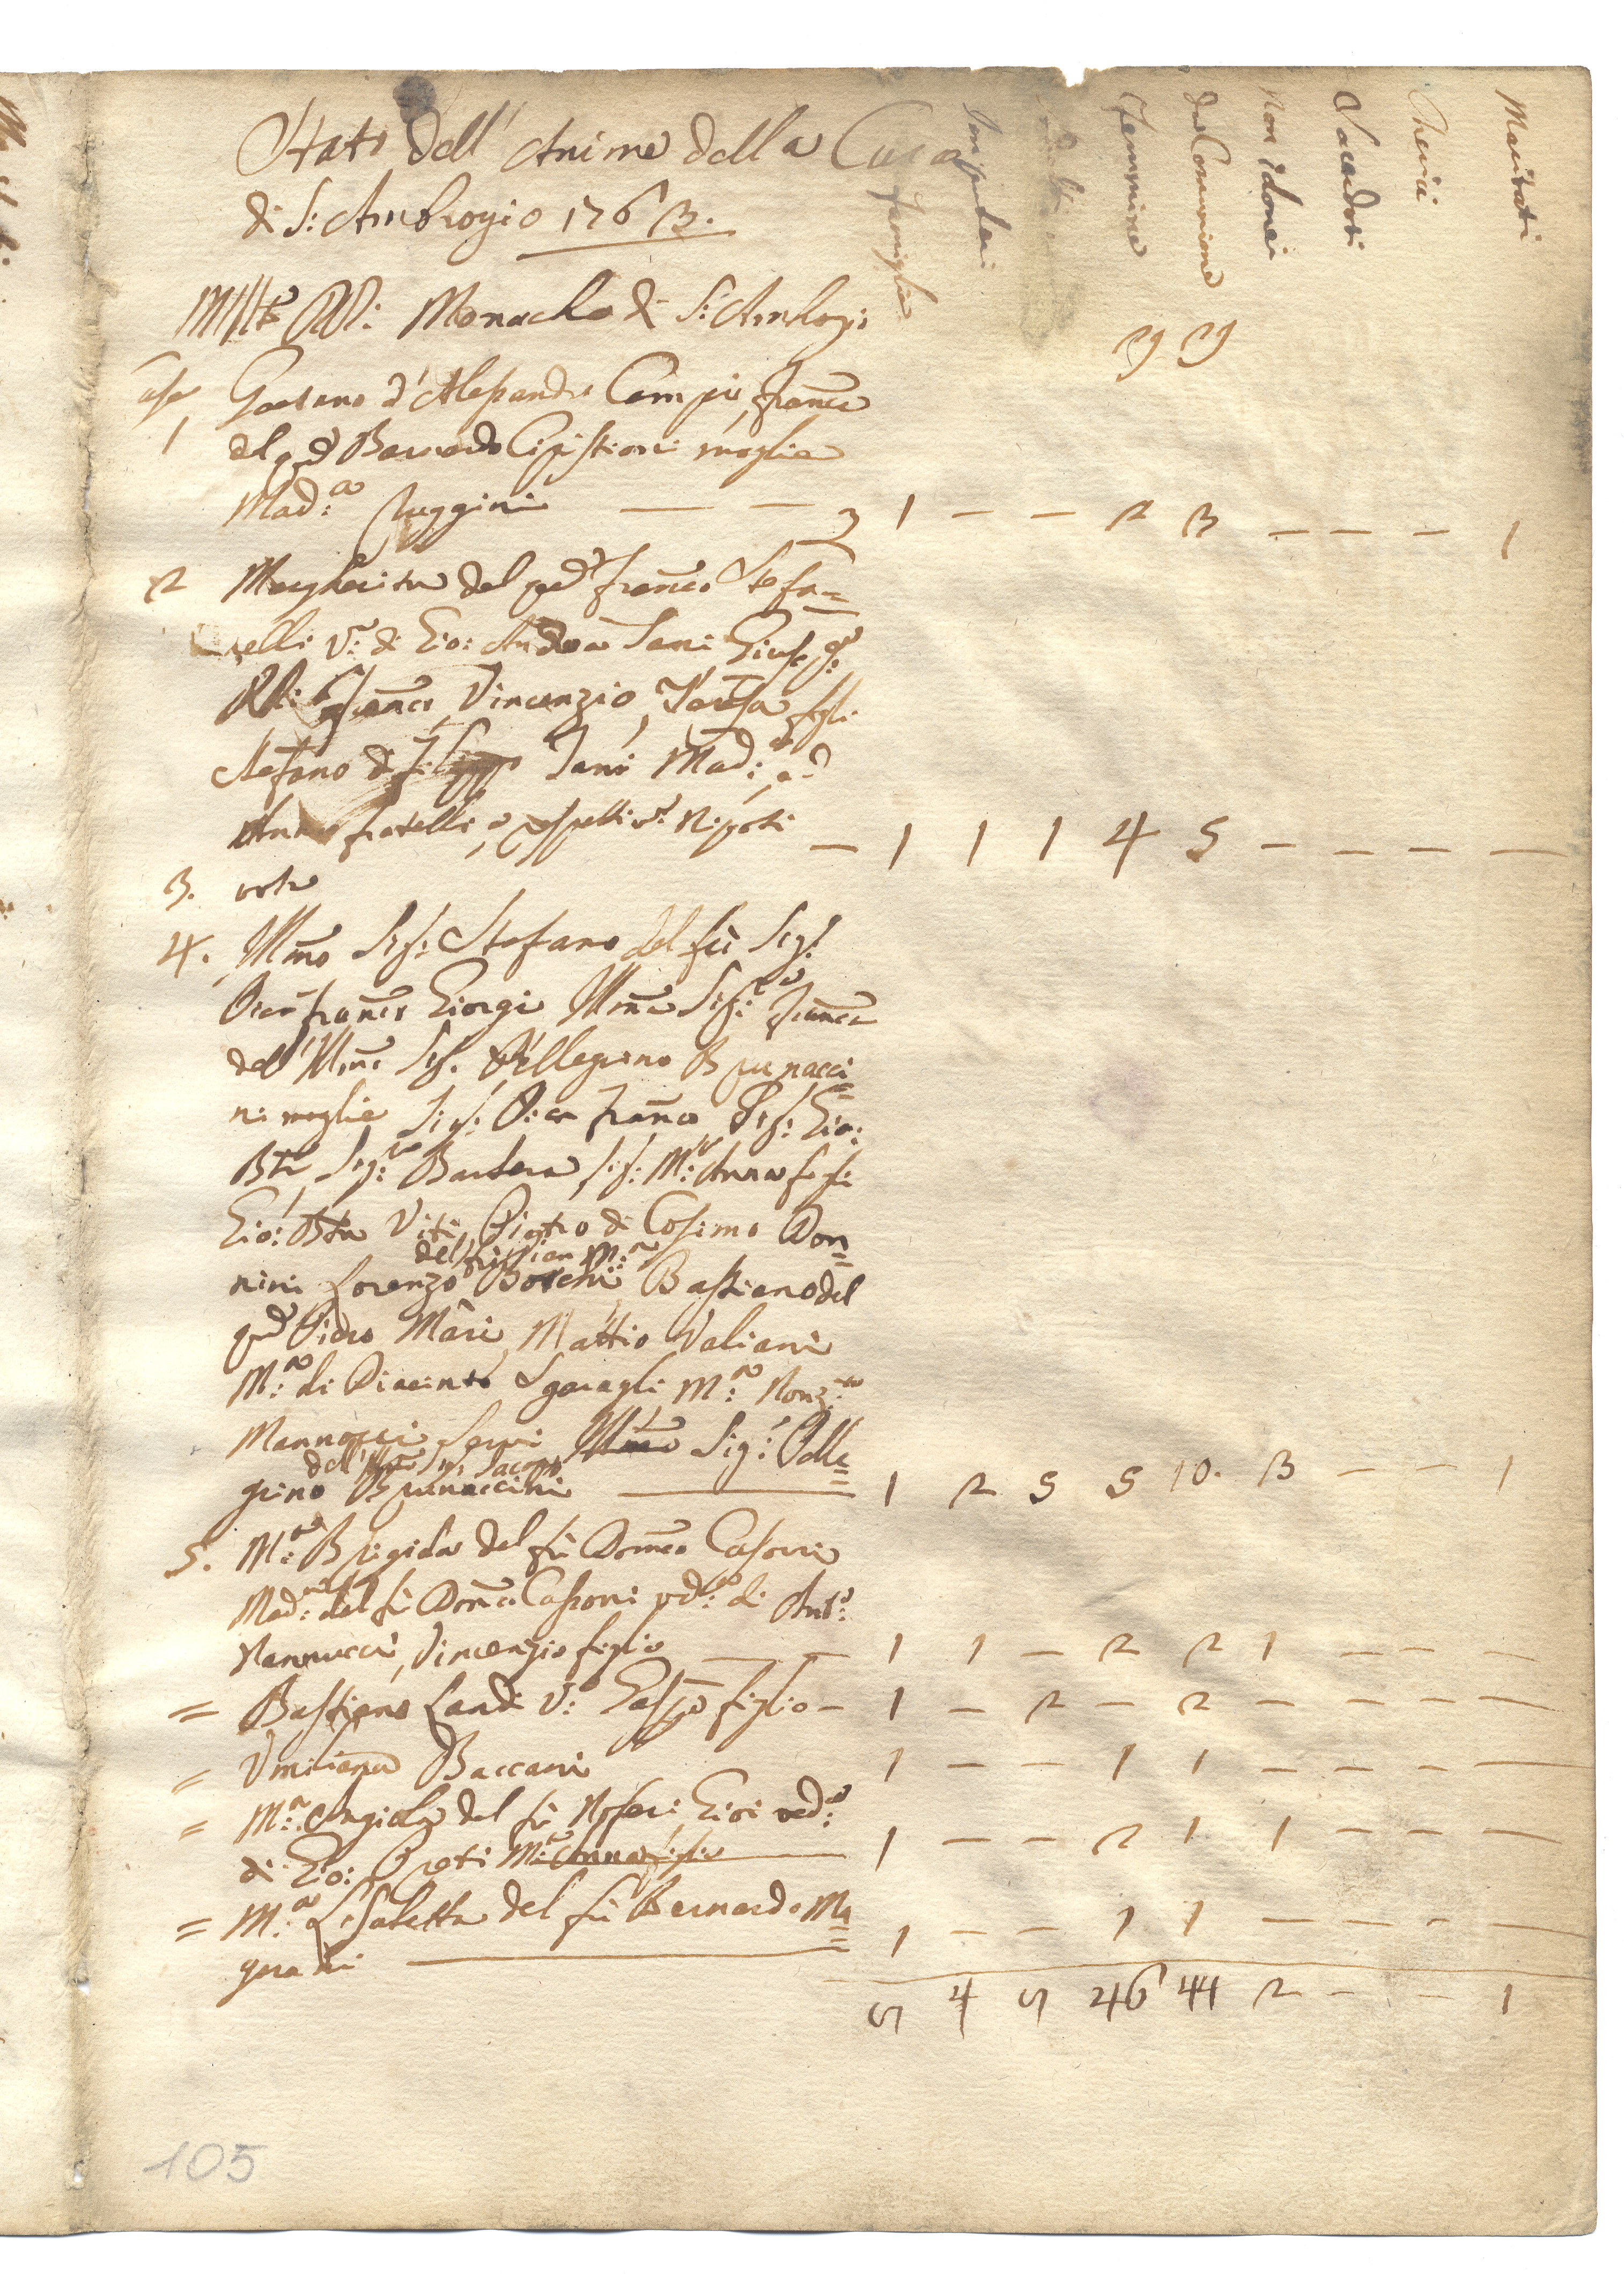 Stato dell' Anime della Cura
di S: Ambrogio 1763.
famiglie
Impuberi
Femmine
da Comunione
Non Idonei
Sacerdoti
Cherici
Maritati
Monache di S: Ambrogio
29 29
Case Gaetano d'Alessandro Campi, Franca
1 del qd Bernardo Cipistioni moglie
Mad:a Ruggini — — 3 1 — — 2 3 — — — 1
2 Margherita del qd Franco Stefa=
nelli V:a di Gio: Andrea Sani Giuse:
Franco, Vincenzio, Teresa figli
Stefano di Sani Mad:a
Anna fratelli, e respettivi Nipoti — 1 1 1 4 5 — — — —
3. vota
4. Illmo Sig: Stefano del fù Sig:
Pier Franco Giorgi Illma Sig:ra Franca
dell' Illmo Sig. Pellegrino Brunacci=
ni moglie Sig: Pier Franco Sig: Gio:
Bta Sig:ra Barbera Sig: M:a Anna figli
Gio: Bta Viti, Pietro di Cosimo Don=
del fù Pier M:a
nini Lorenzo Boschi Bastiano del
qd Piero Mari, Mattio Valiani
M:a di Diacinto Sgaragli M:a Nonz:a
Mannozzi Servi Illmo Sig: Pelle=
dell' Illmo Sig Jacopo
grino Brunaccini 1 2 5 5 10. 3 — — 1
5. M:a Brigida del fù Domco Casoni
Mad:a del fù Domco Casoni ved:a di Ant:o
Nannucci, Vincenzio figlio — — 1 1 — 2 2 1 — — —
= Bastiano Landi V:o Gaspo figlio — 1 — 2 — 2 — — — —
= Umiliana Baccani 1 — — 1 1 — — — —
= M:a Angiola del fù Noferi Gioi ved:a
di Gio: Preti M:a Anna figlia 1 — — 2 1 1 — — —
= M:a Lisabetta del fù Bernardo Ma=
grani 1 — — 1 1 — — — —
5 4 5 46 44 2 — — 1
105